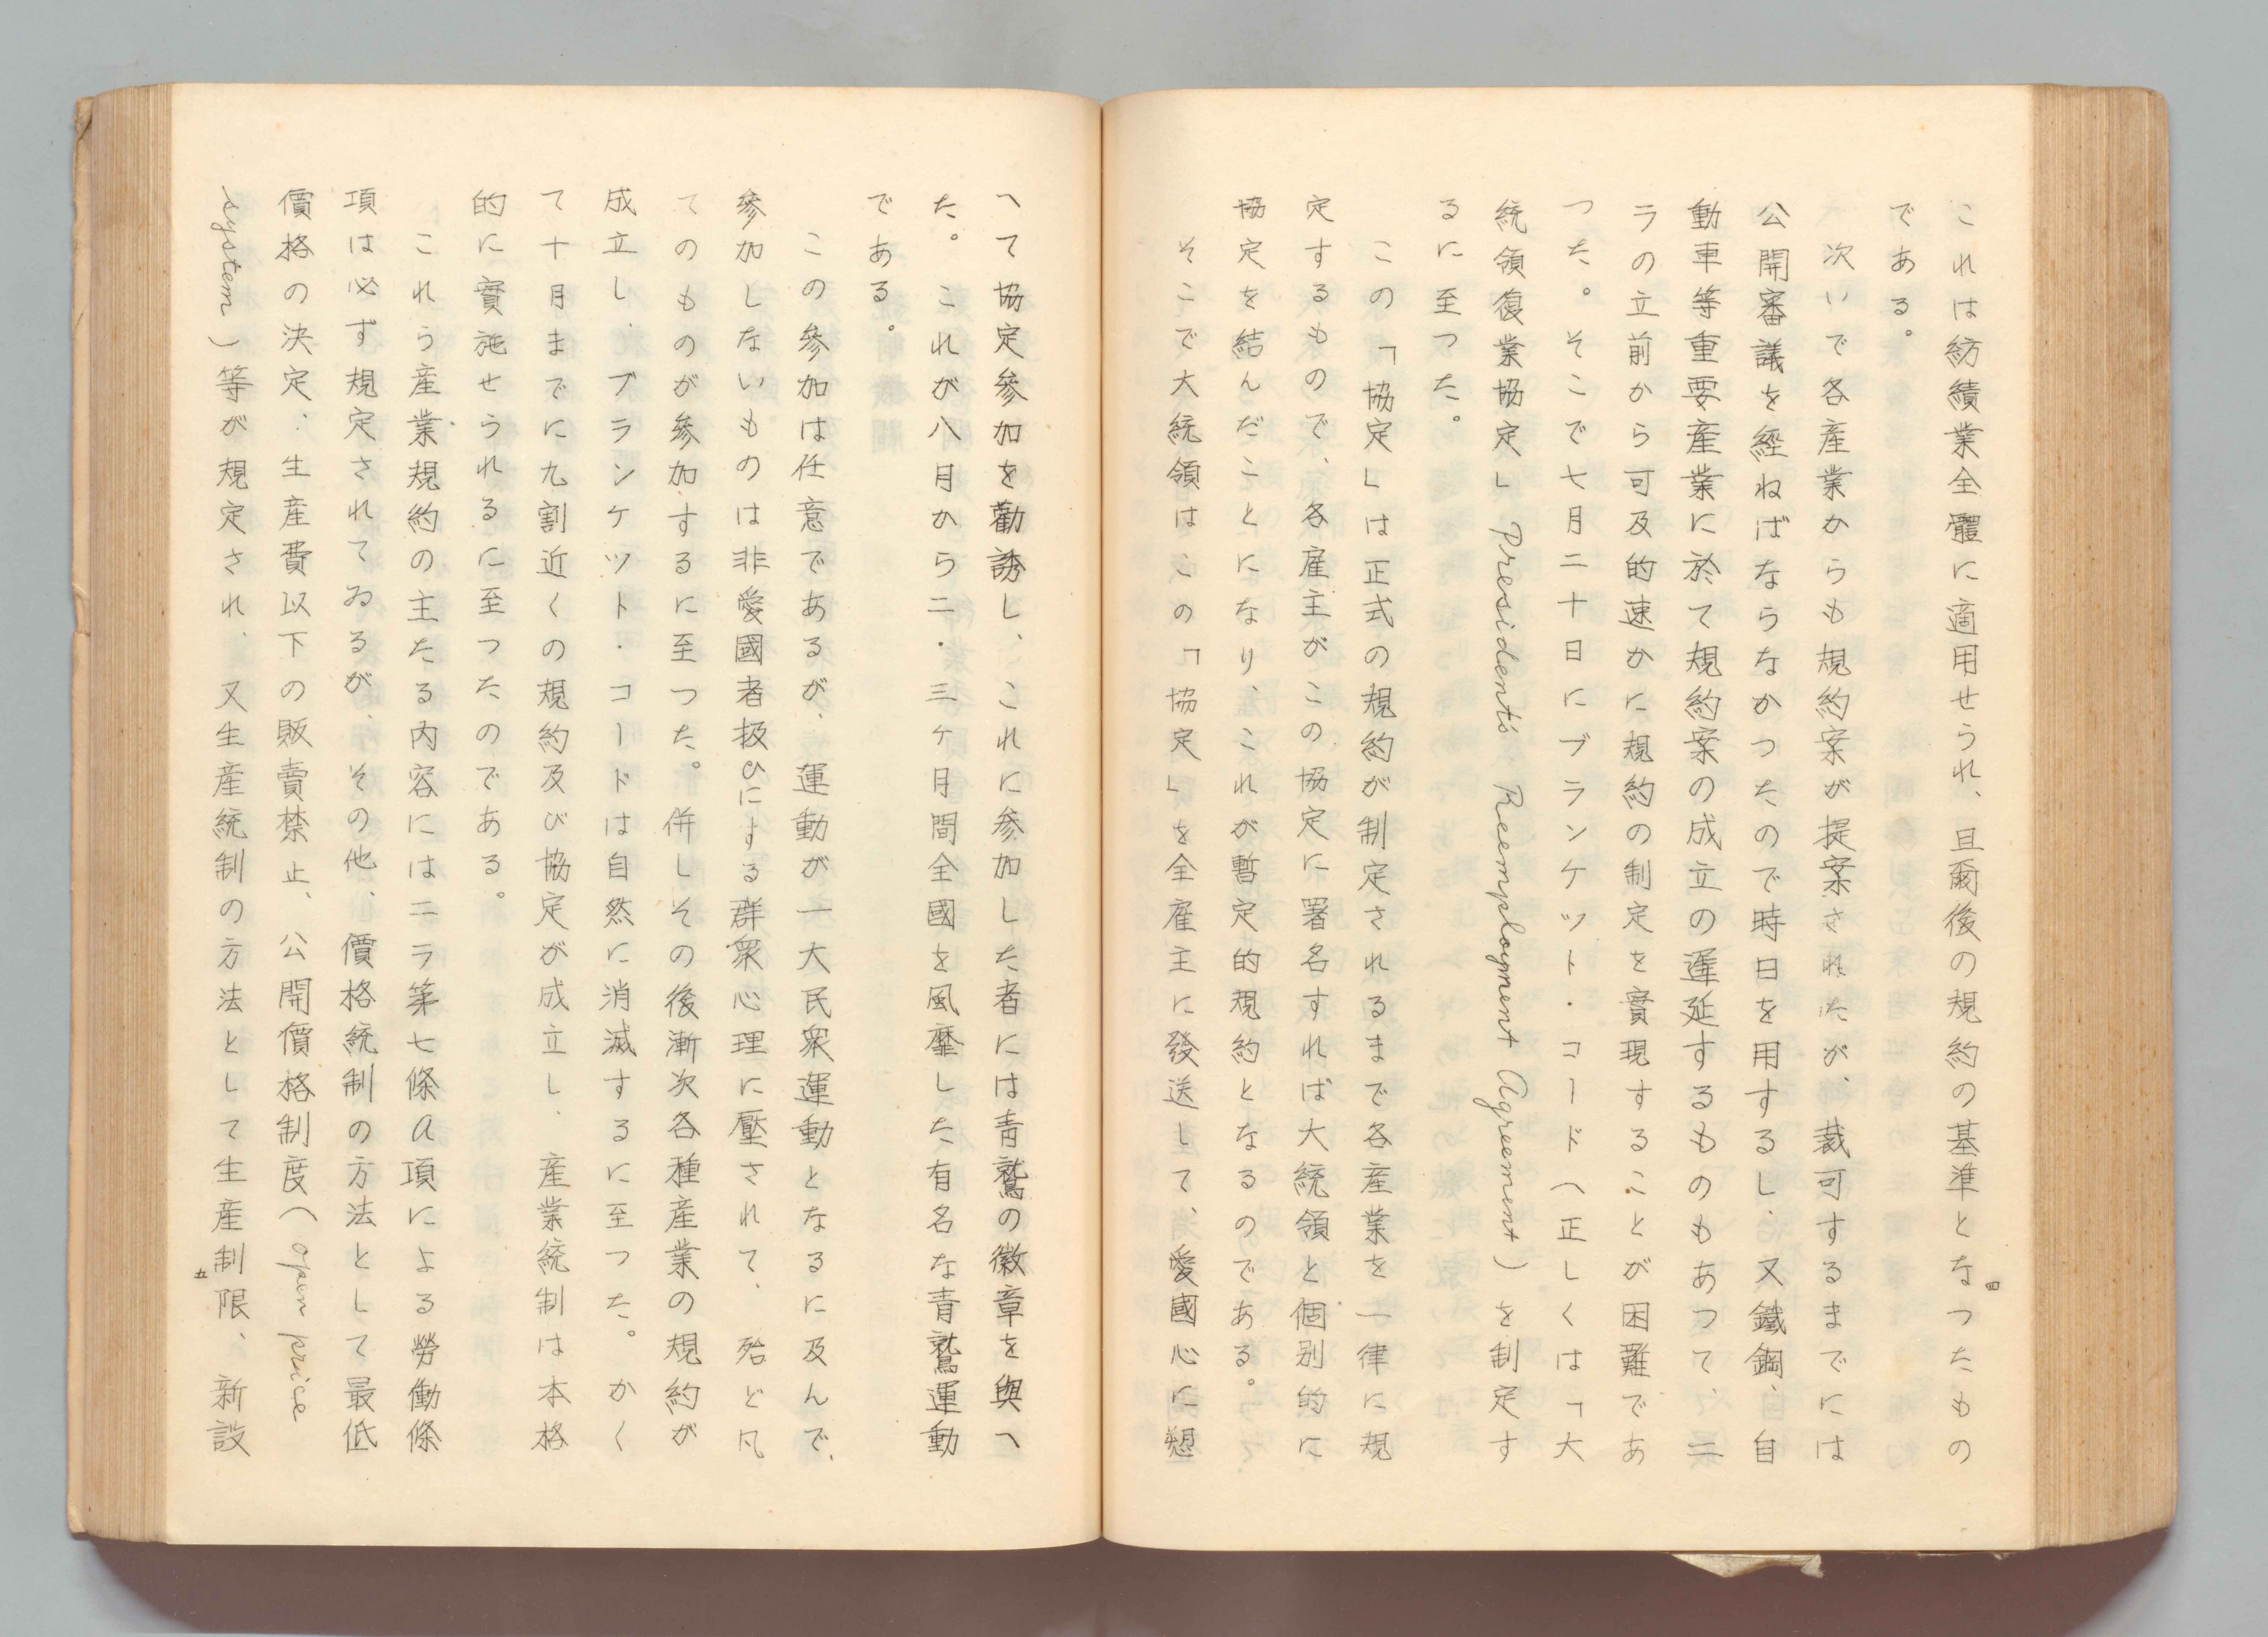 これは紡績業全體に適用せられ、且爾後の規約の基準となつたもの
である。
次いで各産業からも規約案が提案されたが、裁可するまでには
公開審議を經ねばならなかつたので時日を用するし、又鐵鋼、自
動車等重要産業に於て規約案の成立の遲延するものもあつて、ニ
ラの立前から可及的速かに規約の制定を實現することが困難であ
つた。そこで七月二十日にブランケツト・コード（正しくは「大
統領復業協定」President's Reemployment Agreement）を制定す
るに至つた。
この「協定」は正式の規約が制定されるまで各産業を一律に規
定するもので、各雇主がこの協定に署名すれば大統領と個別的に
協定を結んだことになり、これが暫定的規約となるのである。
そこで大統領はこの「協定」を全雇主に發送して、愛國心に愬
四
へて協定參加を勸誘し、これに參加した者には青鷲の徽章を與へ
た。これが八月から二・三ヶ月間全國を風靡した有名な青鷲運動
である。
この參加は任意であるが、運動が一大民衆運動となるに及んで、
參加しないものは非愛國者扱ひにする群衆心理に壓されて、殆ど凡
てのものが參加するに至つた。併しその後漸次各種産業の規約が
成立し、ブランケツト・コードは自然に消滅するに至つた。かく
て十月までに九割近くの規約及び協定が成立し、産業統制は本格
的に實施せられるに至つたのである。
これら産業規約の主たる内容にはニラ第七條a項による勞働條
項は必ず規定されてゐるが、その他、價格統制の方法として最低
價格の決定、生産費以下の販賣禁止、公開價格制度（open price
system）等が規定され、又生産統制の方法として生産制限、新設
五